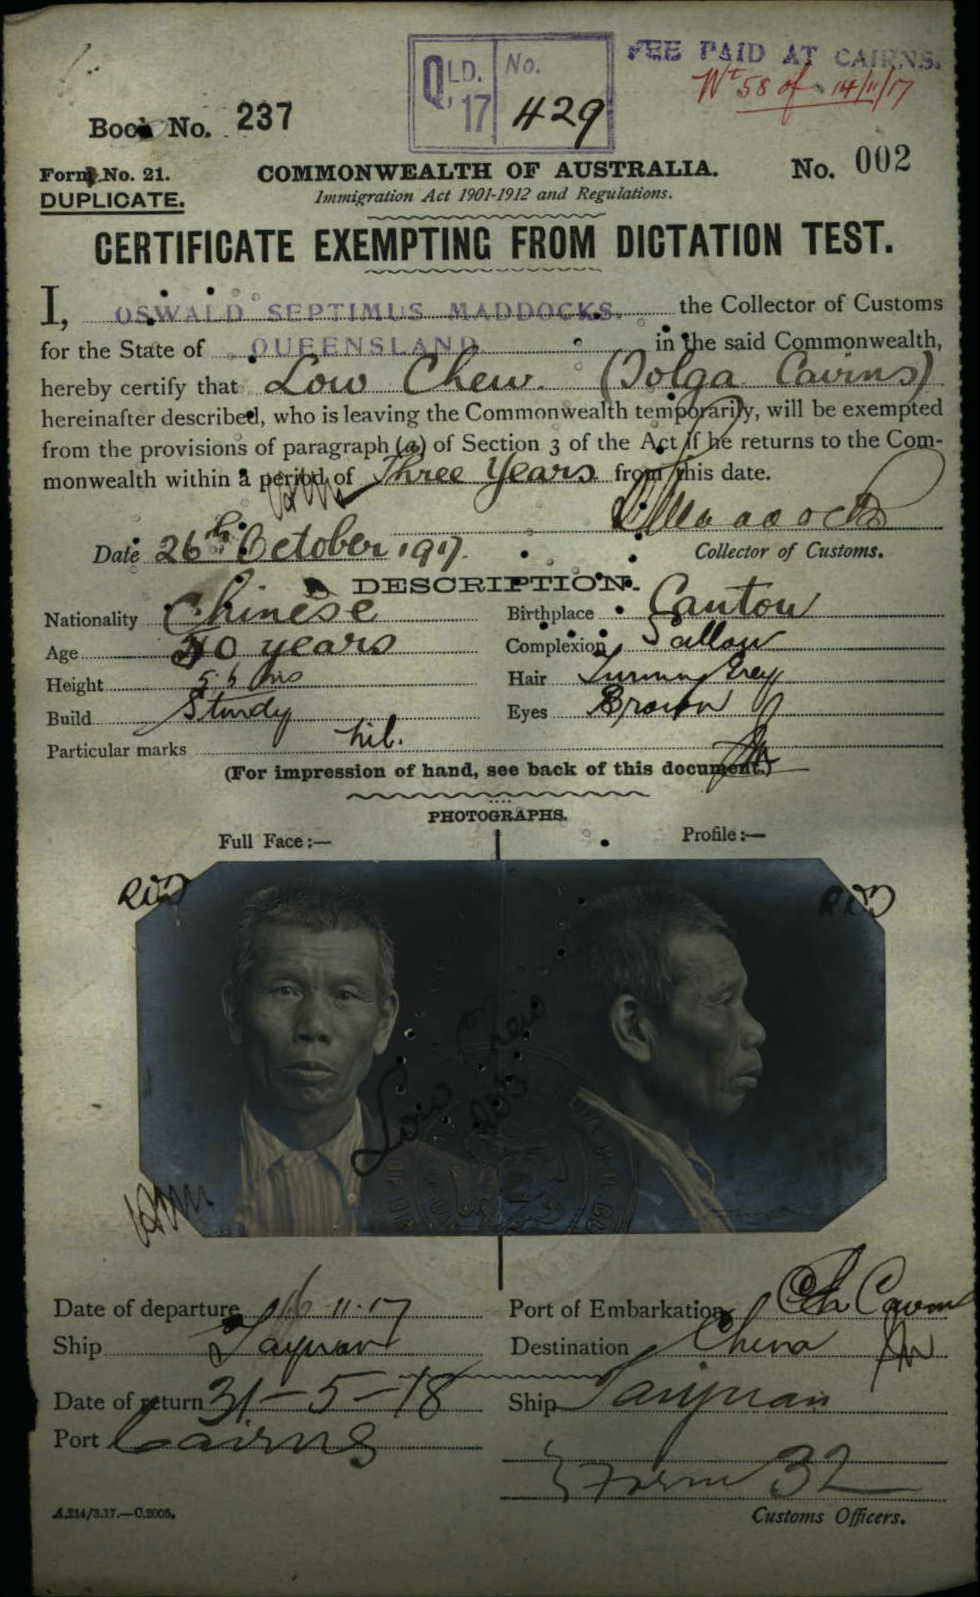 QLD. 17 No. 429
FEE PAID AT CAIRNS.
Wt 58 of 14/11/17
Book No. 237
Form No. 21.
DUPLICATE.
COMMONWEALTH OF AUSTRALIA.
No. 002
Immigration Act 1901-1912 and Regulations.
CERTIFICATE EXEMPTING FROM DICTATION TEST.
I, OSWALD SEPTIMUS MADDOCKS, the Collector of Customs
for the State of QUEENSLAND in the said Commonwealth,
hereby certify that Low Chew. (Tolga Cairns)
hereinafter described, who is leaving the Commonwealth temporarily, will be exempted
from the provisions of paragraph (a) of Section 3 of the Act if he returns to the Com-
monwealth within a period of Three Years from this date.
Date 26th October 1917.
Collector of Customs.
DESCRIPTION.
Nationality Chinese
Birthplace Canton
Age 50 years
Complexion Sallow
Height 5.6 ins
Hair Turning Grey
Build Sturdy
Eyes Brown
Particular marks nil.
(For impression of hand, see back of this document.)
PHOTOGRAPHS.
Full Face:—
Profile:—
Low Chew
Date of departure 16-11-17
Port of Embarkation Cairns
Ship Taiyuan
Destination China
Date of return 31-5-18
Ship Taiyuan
Port Cairns
Form 32
A.214/3.17.—C.2005.
Customs Officers.